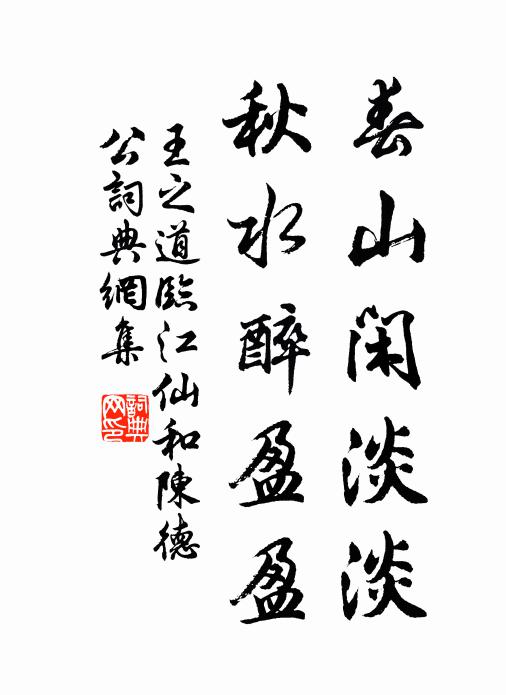 春山閑淡淡
秋水醉盈盈
王之道臨江仙和陳德
公詞典網集
詞典網印